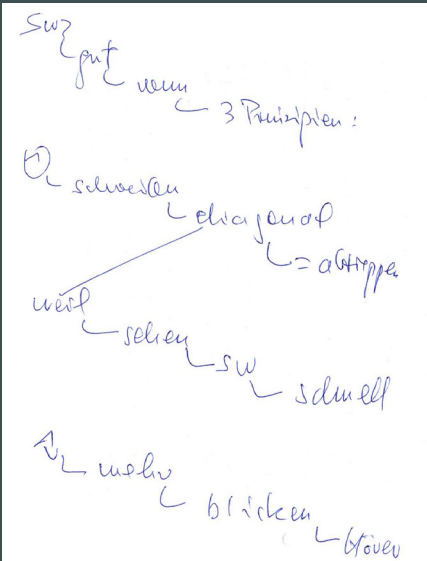 gut
wenn
3 Prinzipien:
schreiben
diagonal
= abtreppen
weil
sehen
sw
schnell
mehr
blicken
Hörer